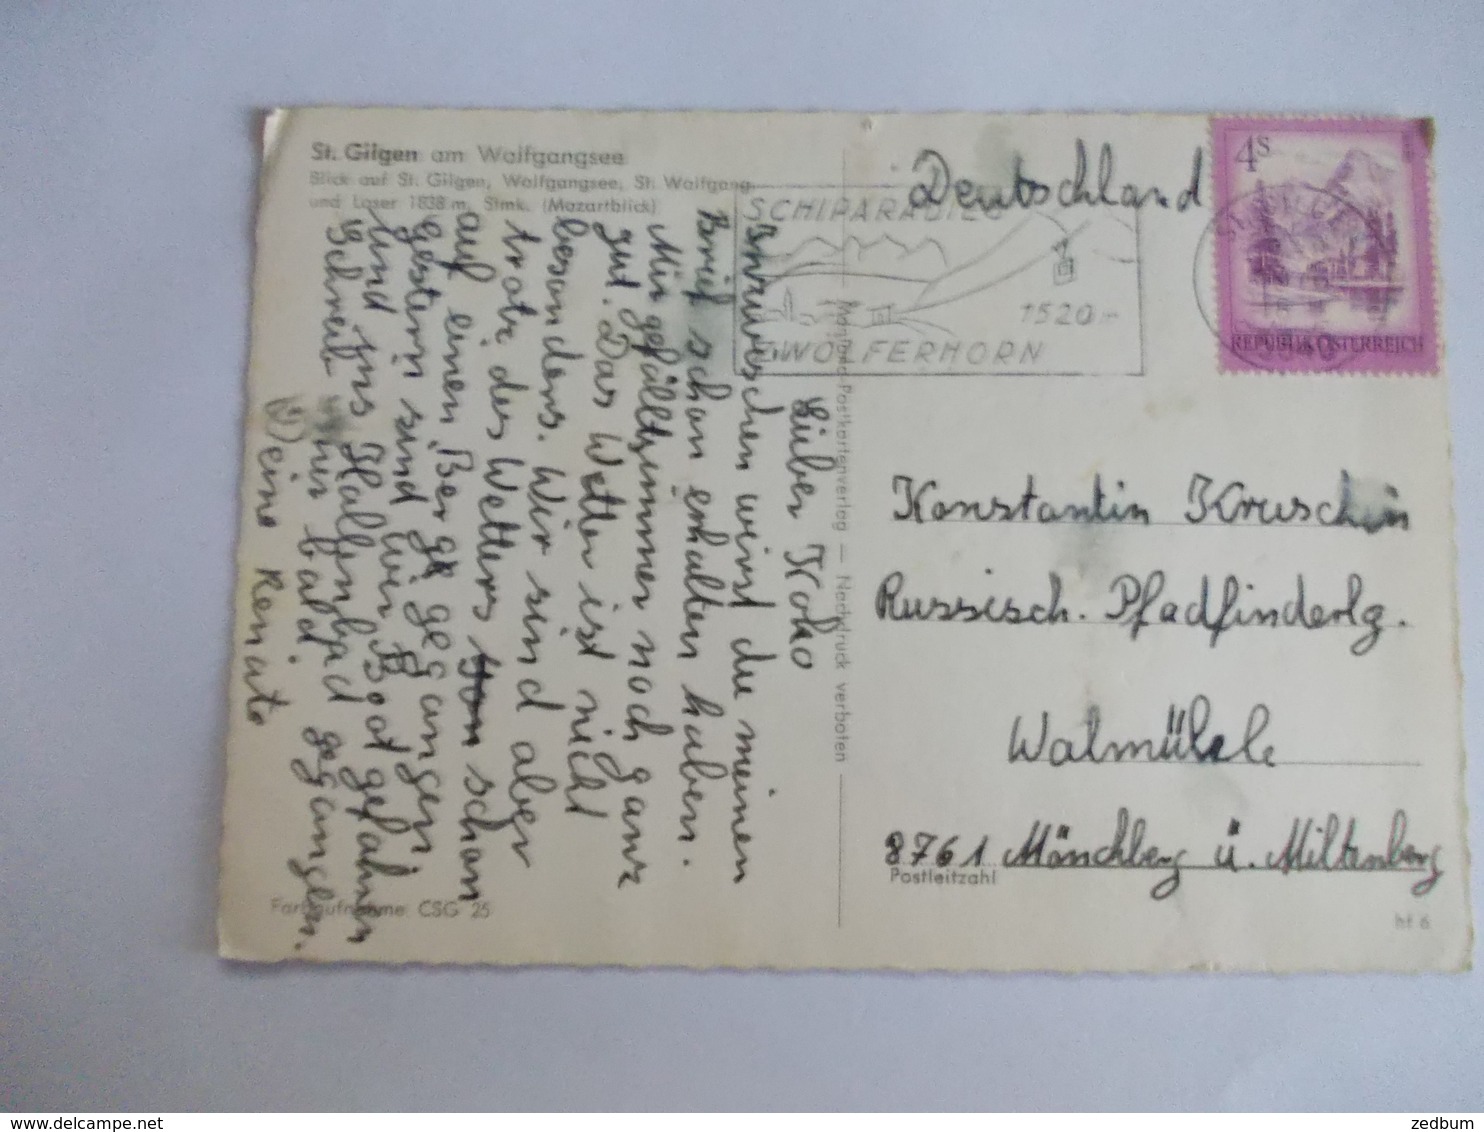 St. Gilgen am Wolfgangsee
Blick auf St. Gilgen, Wolfgangsee, St. Wolfgang
und Loser 1838 m, Stmk. (Mozartblick)
Deutschland
4S
REPUBLIK ÖSTERREICH
SCHIPARADIES
1520 m
ZWÖLFERHORN
Lieber Koko
Inzwischen wirst du meinen
Brief schon erhalten haben.
Mir gefällt immer noch ganz
gut. Das Wetter ist nicht
besonders. Wir sind aber
trotz des Wetters schon
auf einen Berg gegangen
gestern sind wir Boot gefahren
und ins Hallenbad gegangen.
Schreib mir bald.
Deine Renate
Konstantin Kruschin
Russisch. Pfadfinderlg.
Walmühle
8761 Mönchberg ü. Miltenberg
Postleitzahl
Postkartenverlag — Nachdruck verboten
Farbaufnahme CSG 25
hf 6
zedbum